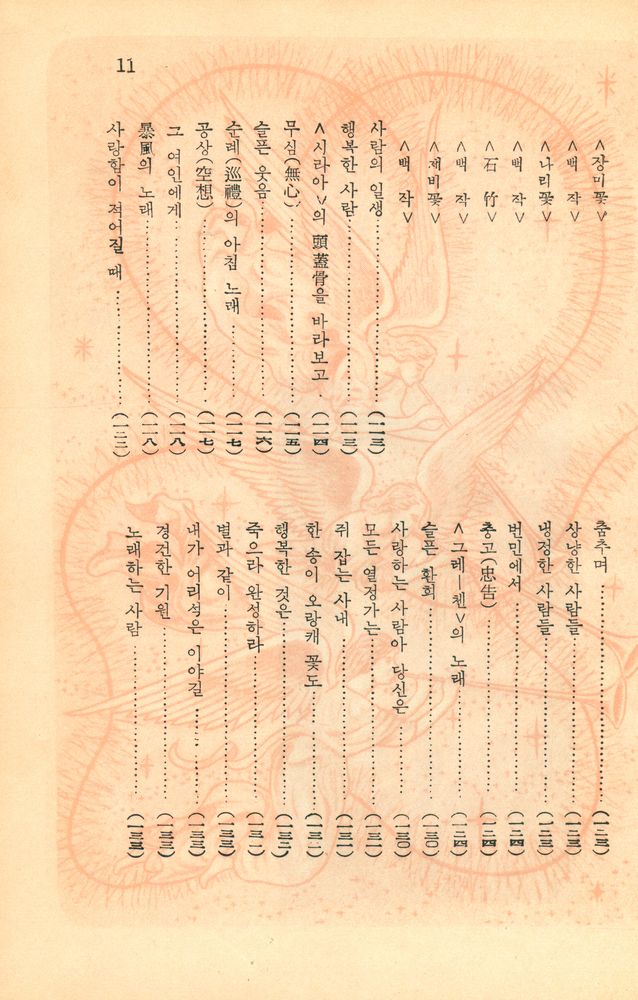 11
<장미꽃>
<백 작>
<나리꽃>
<백 작>
<石 竹>
<백 작>
<제비꽃>
<백 작>
사람의 일생……………(一一三)
행복한 사람……………(一一三)
<시라아>의 頭蓋骨을 바라보고 .(一一四)
무심(無心)……………(一一五)
슬픈 웃음……………(一一六)
순례(巡禮)의 아침 노래……(一一七)
공상(空想)……………(一一七)
그 여인에게……………(一一八)
暴風의 노래……………(一一八)
사랑함이 적어질 때…………(一二三)
춤추며……………(一二三)
상냥한 사람들……………(一二三)
냉정한 사람들……………(一二三)
번민에서……………(一二四)
충고(忠告)……………(一二四)
<그레―첸>의 노래…………(一二四)
슬픈 환회……………(一三〇)
사랑하는 사람아 당신은………(一三〇)
모든 열정가는……………(一三一)
쥐 잡는 사내……………(一三一)
한 송이 오랑캐 꽃도…………(一三一)
행복한 것은……………(一三二)
죽으라 완성하라……………(一三二)
별과 같이……………(一三三)
내가 어리석은 이야길………(一三三)
경건한 기원……………(一三三)
노래하는 사람……………